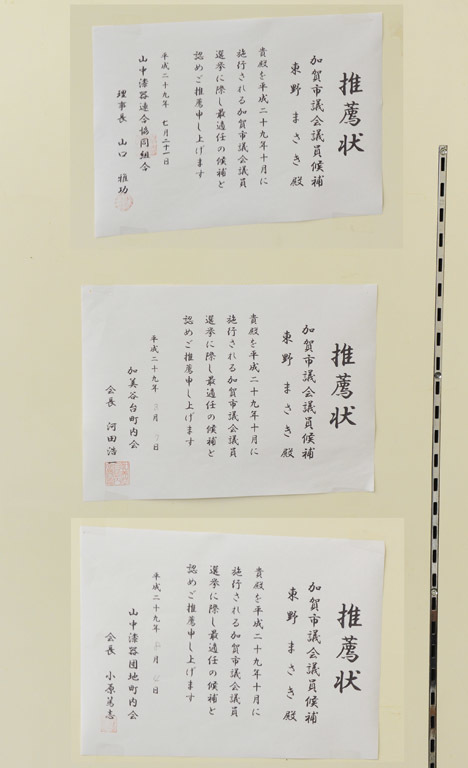 推薦状
加賀市議会議員候補
東野 まさき 殿
貴殿を平成二十九年十月に
施行される加賀市議会議員
選挙に際し最適任の候補と
認めご推薦申し上げます
平成二十九年 七月二十一日
山中漆器連合協同組合
理事長 山口 雅功
推薦状
加賀市議会議員候補
東野 まさき 殿
貴殿を平成二十九年十月に
施行される加賀市議会議員
選挙に際し最適任の候補と
認めご推薦申し上げます
平成二十九年 月 日
加美谷台町内会
会長 河田浩一
推薦状
加賀市議会議員候補
東野 まさき 殿
貴殿を平成二十九年十月に
施行される加賀市議会議員
選挙に際し最適任の候補と
認めご推薦申し上げます
平成二十九年 月 日
山中漆器団地町内会
会長 小原篤志